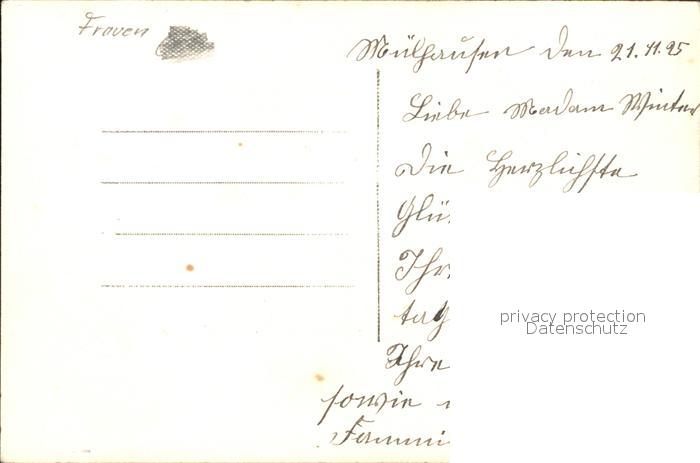 Frauen
Mülhausen den 21.11.25
Liebe Madam Winter
Die Herzlichste
Glü
Ihr
tag
Ihre
sowie
Fammi
privacy protection
Datenschutz